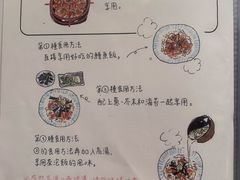 享用。
第①種食用方法
直接享用好吃的鰻魚飯。
第②種食用方法
配上蔥、芥末和海苔一起享用。
第③種食用方法
②的食用方法再加入高湯，
享用茶泡飯的風味。